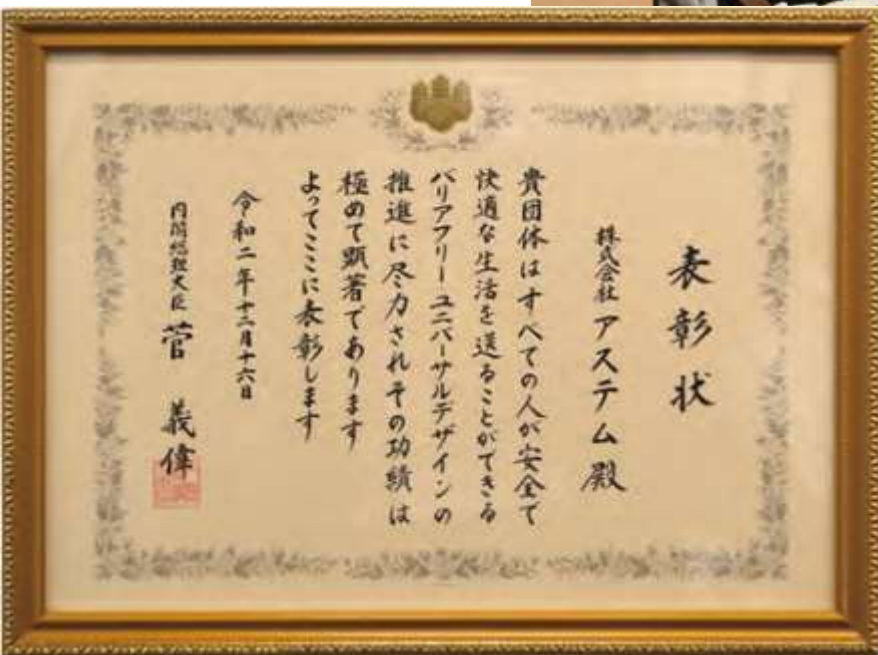 表彰状
株式会社 アステム 殿
貴団体はすべての人が安全で
快適な生活を送ることができる
バリアフリー ユニバーサルデザインの
推進に尽力されその功績は
極めて顕著であります
よってここに表彰します
令和二年十二月十六日
内閣総理大臣 菅 義偉